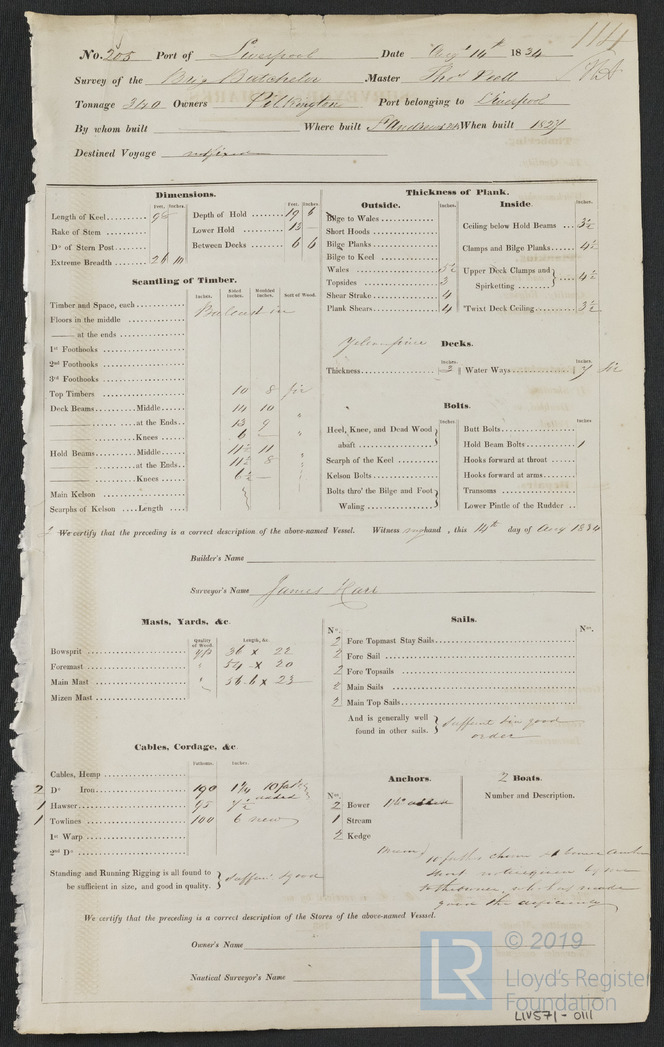 114
No. 205 Port of Liverpool Date Augt 14th 1834
Survey of the Brig Batchelor Master Thos
Tonnage 340 Owners Pilkington Port belonging to Liverpool
By whom built Where built St Andrews When built 1827
Destined Voyage
Dimensions.
Feet. Inches. Feet. Inches.
Length of Keel 98 Depth of Hold 19 6
Rake of Stem Lower Hold 13 —
Do of Stern Post Between Decks 6 6
Extreme Breadth 26 10
Scantling of Timber.
Inches. Sided Inches. Moulded Inches. Sort of Wood.
Timber and Space, each
Floors in the middle
—— at the ends
1st Foothooks
2nd Foothooks
3rd Foothooks
Top Timbers 10 8 fir
Deck Beams Middle 14 10 "
—— at the Ends 13 9
—— Knees 6 — "
Hold Beams Middle 11½ 11
—— at the Ends 11½ 8 "
—— Knees 6½ —
Main Kelson
Scarphs of Kelson Length
Thickness of Plank.
Outside. Inches. Inside. Inches.
Bilge to Wales
Short Hoods
Bilge Planks
Bilge to Keel
Wales 5½
Topsides 3
Shear Strake 4
Plank Shears 4
Ceiling below Hold Beams 3½
Clamps and Bilge Planks 4½
Upper Deck Clamps and Spirketting 4½
'Twixt Deck Ceiling 3½
Yellow pine Decks.
Inches. Inches.
Thickness 3 Water Ways 7 fir
Bolts.
Inches Inches
Heel, Knee, and Dead Wood abaft
Scarph of the Keel
Kelson Bolts
Bolts thro' the Bilge and Foot Waling
Butt Bolts
Hold Beam Bolts 1
Hooks forward at throat
Hooks forward at arms
Transoms
Lower Pintle of the Rudder
We certify that the preceding is a correct description of the above-named Vessel. Witness my hand, this 14th day of Aug 1834
Builder's Name
Surveyor's Name James
Masts, Yards, &c.
Quality of Wood. Length, &c.
Bowsprit 36 x 22
Foremast " 54 x 20
Main Mast " 56.6 x 23
Mizen Mast
Sails.
No. No.
2 Fore Topmast Stay Sails
2 Fore Sail
2 Fore Topsails
2 Main Sails
2 Main Top Sails
And is generally well found in other sails. sufficient & in good
order
Cables, Cordage, &c.
Fathoms. Inches.
Cables, Hemp
2 Do Iron 190 1¼ 10 fath
added
1 Hawser 95 7½
1 Towlines 100 6 new
1st Warp
2nd Do
Standing and Running Rigging is all found to be sufficient in size, and good in quality. sufficient & good
Anchors.
No.
2 Bower added
1 Stream
2 Kedge
2 Boats.
Number and Description.
10 faths chain & bower anchor
by me
to the owner, who has made
good the deficiency
We certify that the preceding is a correct description of the Stores of the above-named Vessel.
Owner's Name
Nautical Surveyor's Name
LR © 2019
Lloyd's Register
Foundation
LIV571-0111